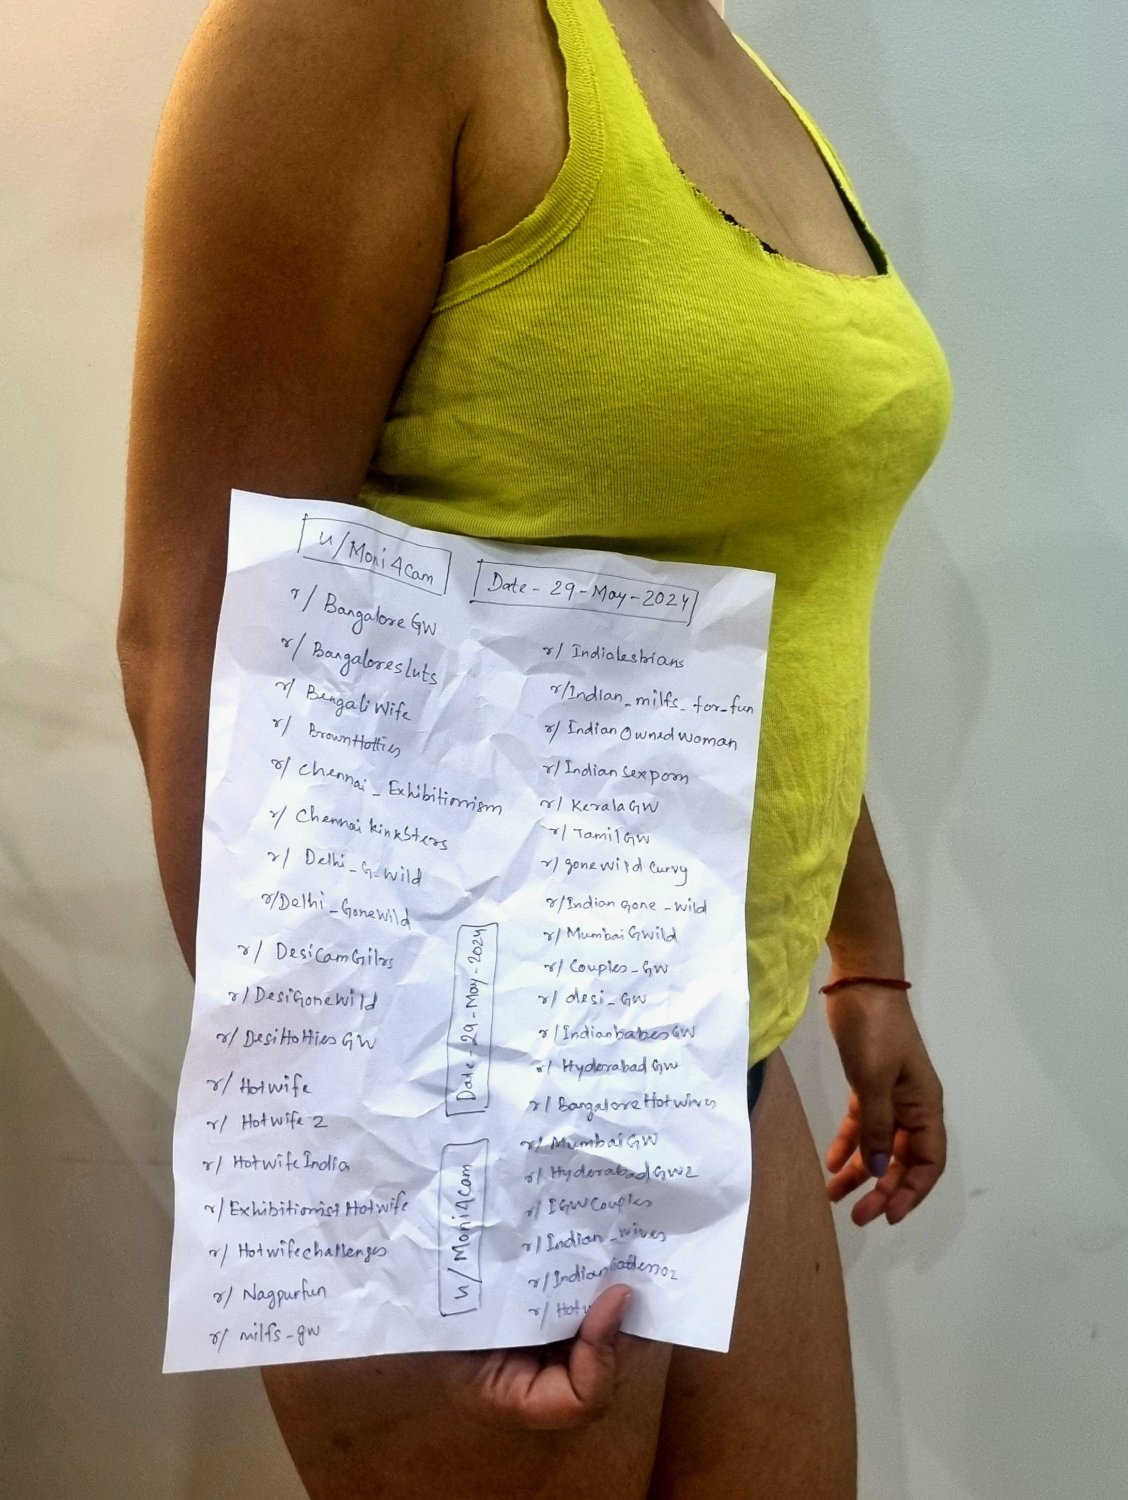 u/Moni4Cam
Date - 29-May-2024
r/ BangaloreGW
r/ Bangaloresluts
r/ BengaliWife
r/ BrownHotties
r/ Chennai_Exhibitionism
r/ Chennai kinksters
r/ Delhi_G_Wild
r/Delhi_Gonewild
r/ DesiCamGilrs
r/DesiGonewild
r/ DesiHottiesGW
r/ Hotwife
r/ Hotwife2
r/ HotwifeIndia
r/ExhibitionistHotwife
r/ Hotwifechallenges
r/ Nagpurfun
r/ milfs-gw
Date - 29-May-2024
u/Moni4cam
r/ Indialesbians
r/Indian_milfs_for_fun
r/ IndianOwnedwoman
r/Indiansexporn
r/ KeralaGW
r/TamilGW
r/gonewildcurvy
r/Indiangone_wild
r/MumbaiGwild
r/ Couples_GW
r/ desi_GW
r/IndianbabesGW
r/ HyderabadGW
r/ BangaloreHotwives
r/ MumbaiGW
r/ HyderabadGW2
r/ IGWCouples
r/Indian_wives
r/Indian
r/ Hotw